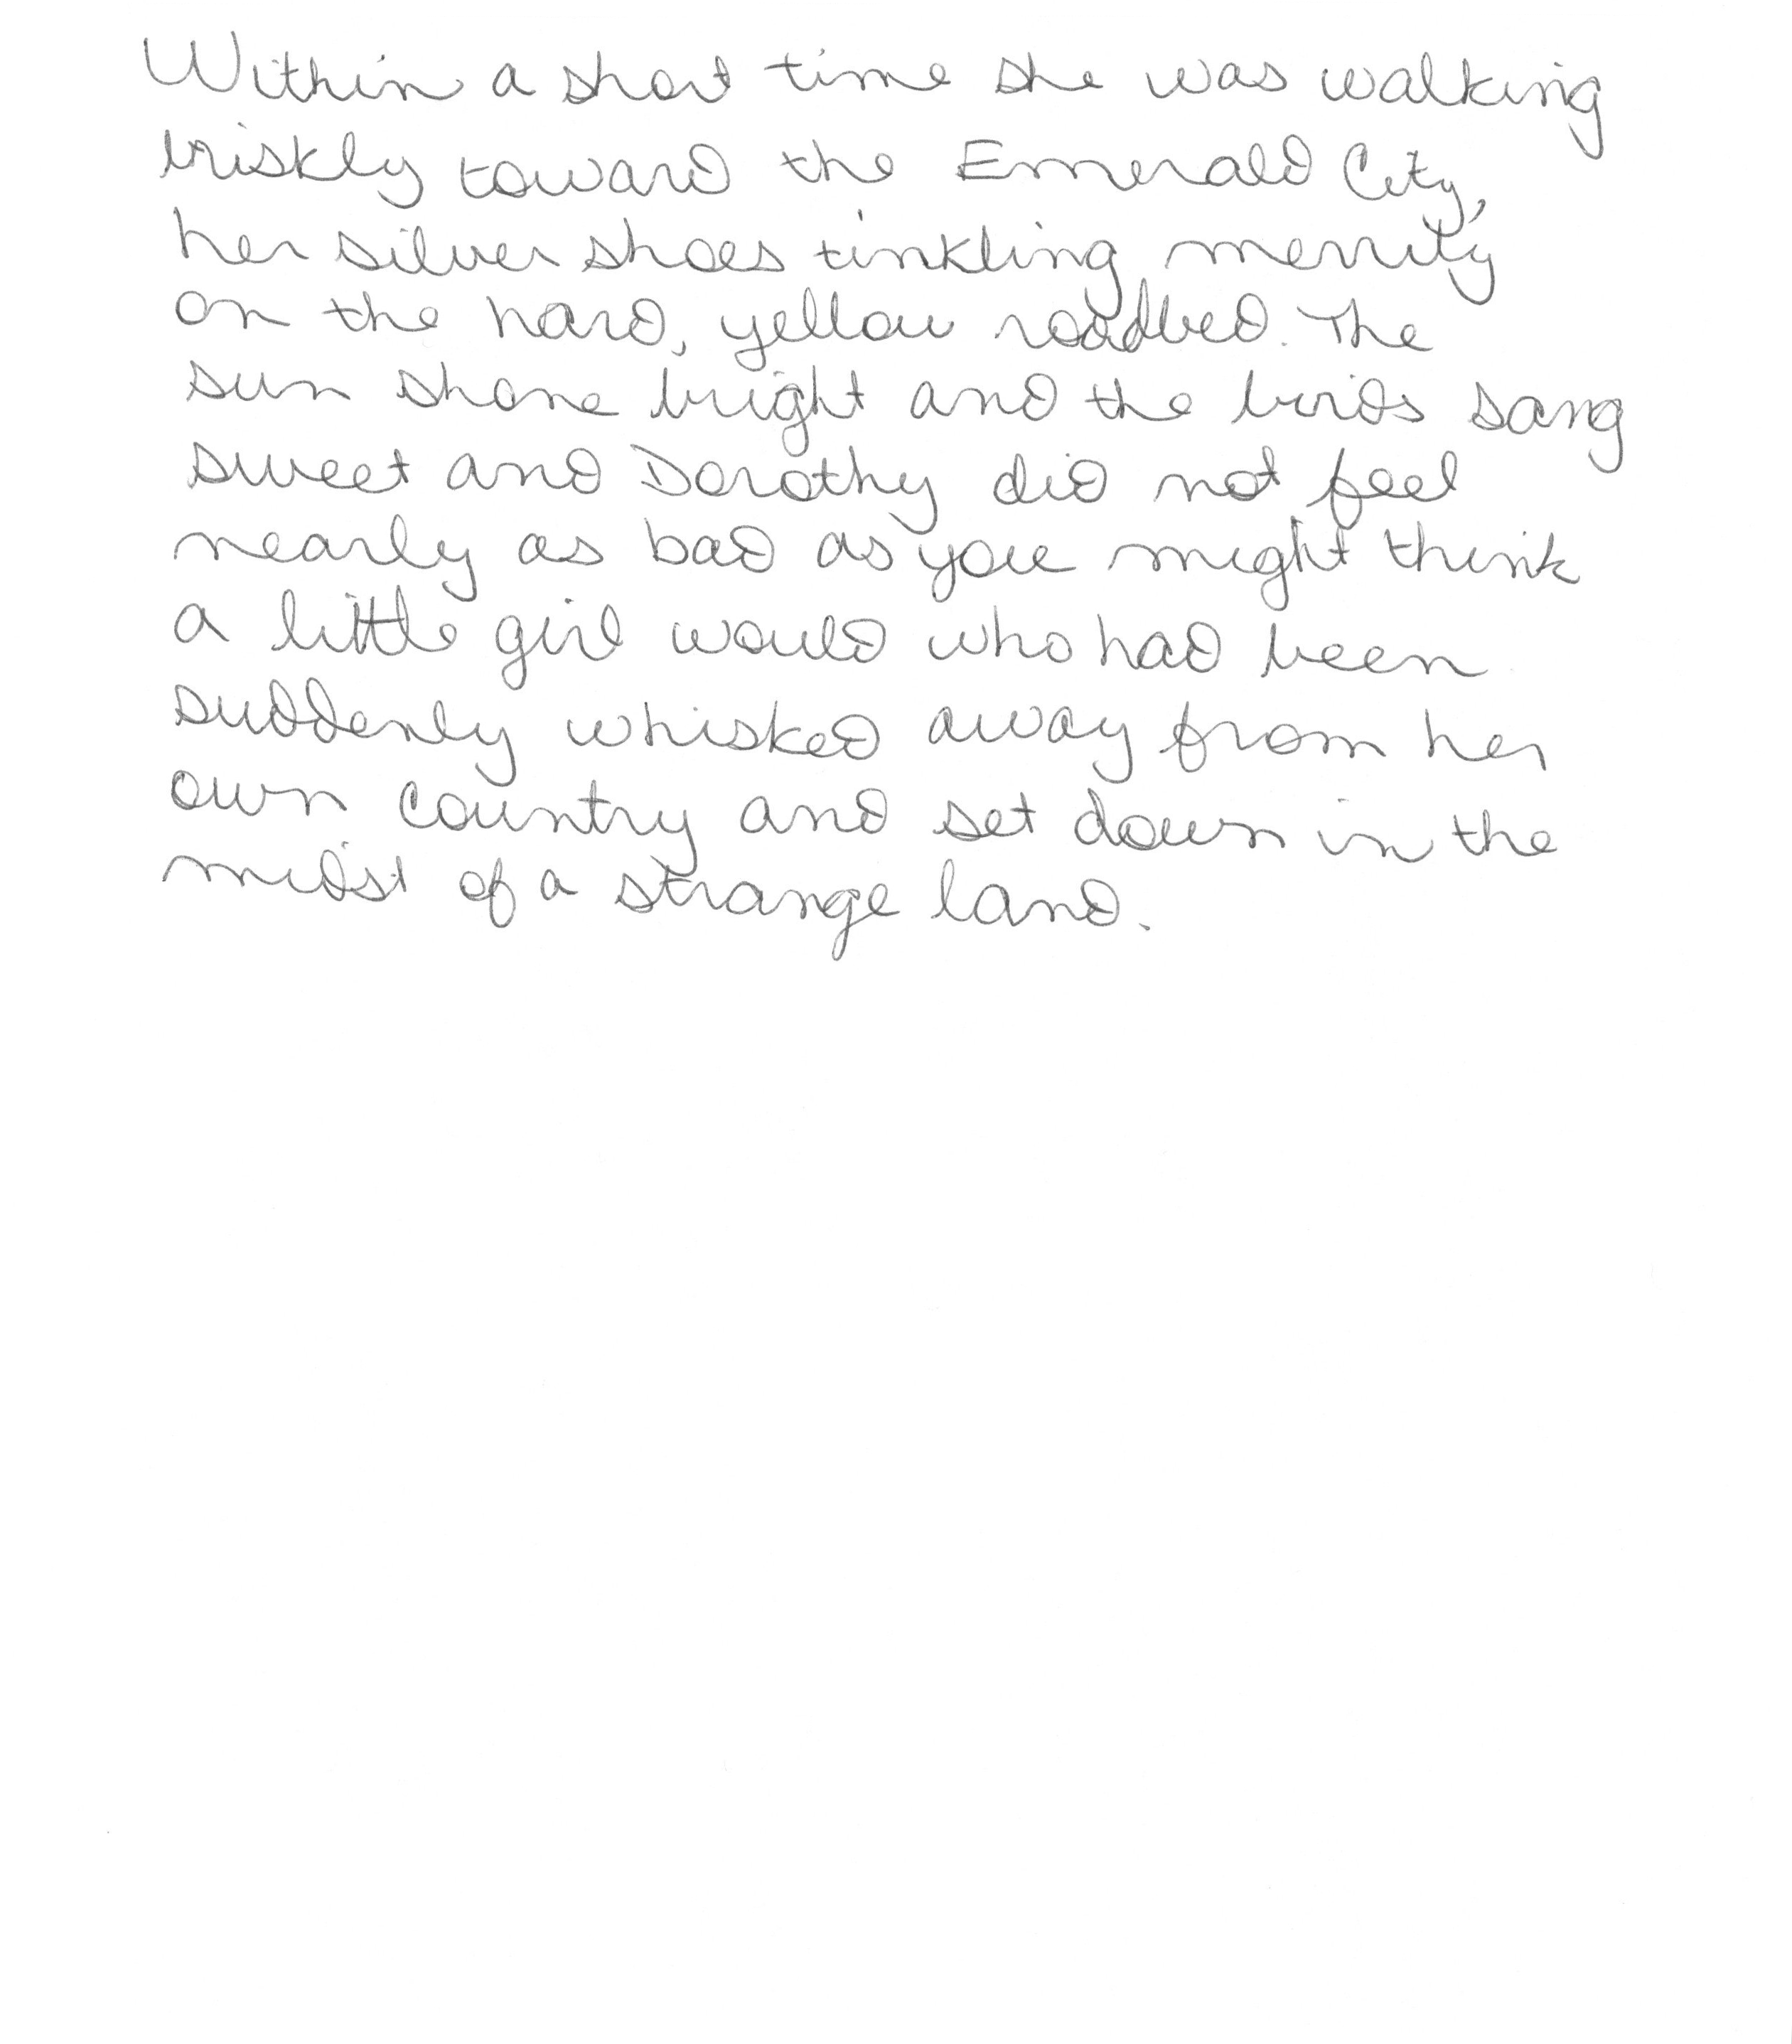 Within a short time she was walking
briskly toward the Emerald City,
her silver shoes tinkling merrily
on the hard, yellow roadbed. The
sun shone bright and the birds sang
sweet and Dorothy did not feel
nearly as bad as you might think
a little girl would who had been
suddenly whisked away from her
own country and set down in the
midst of a strange land.